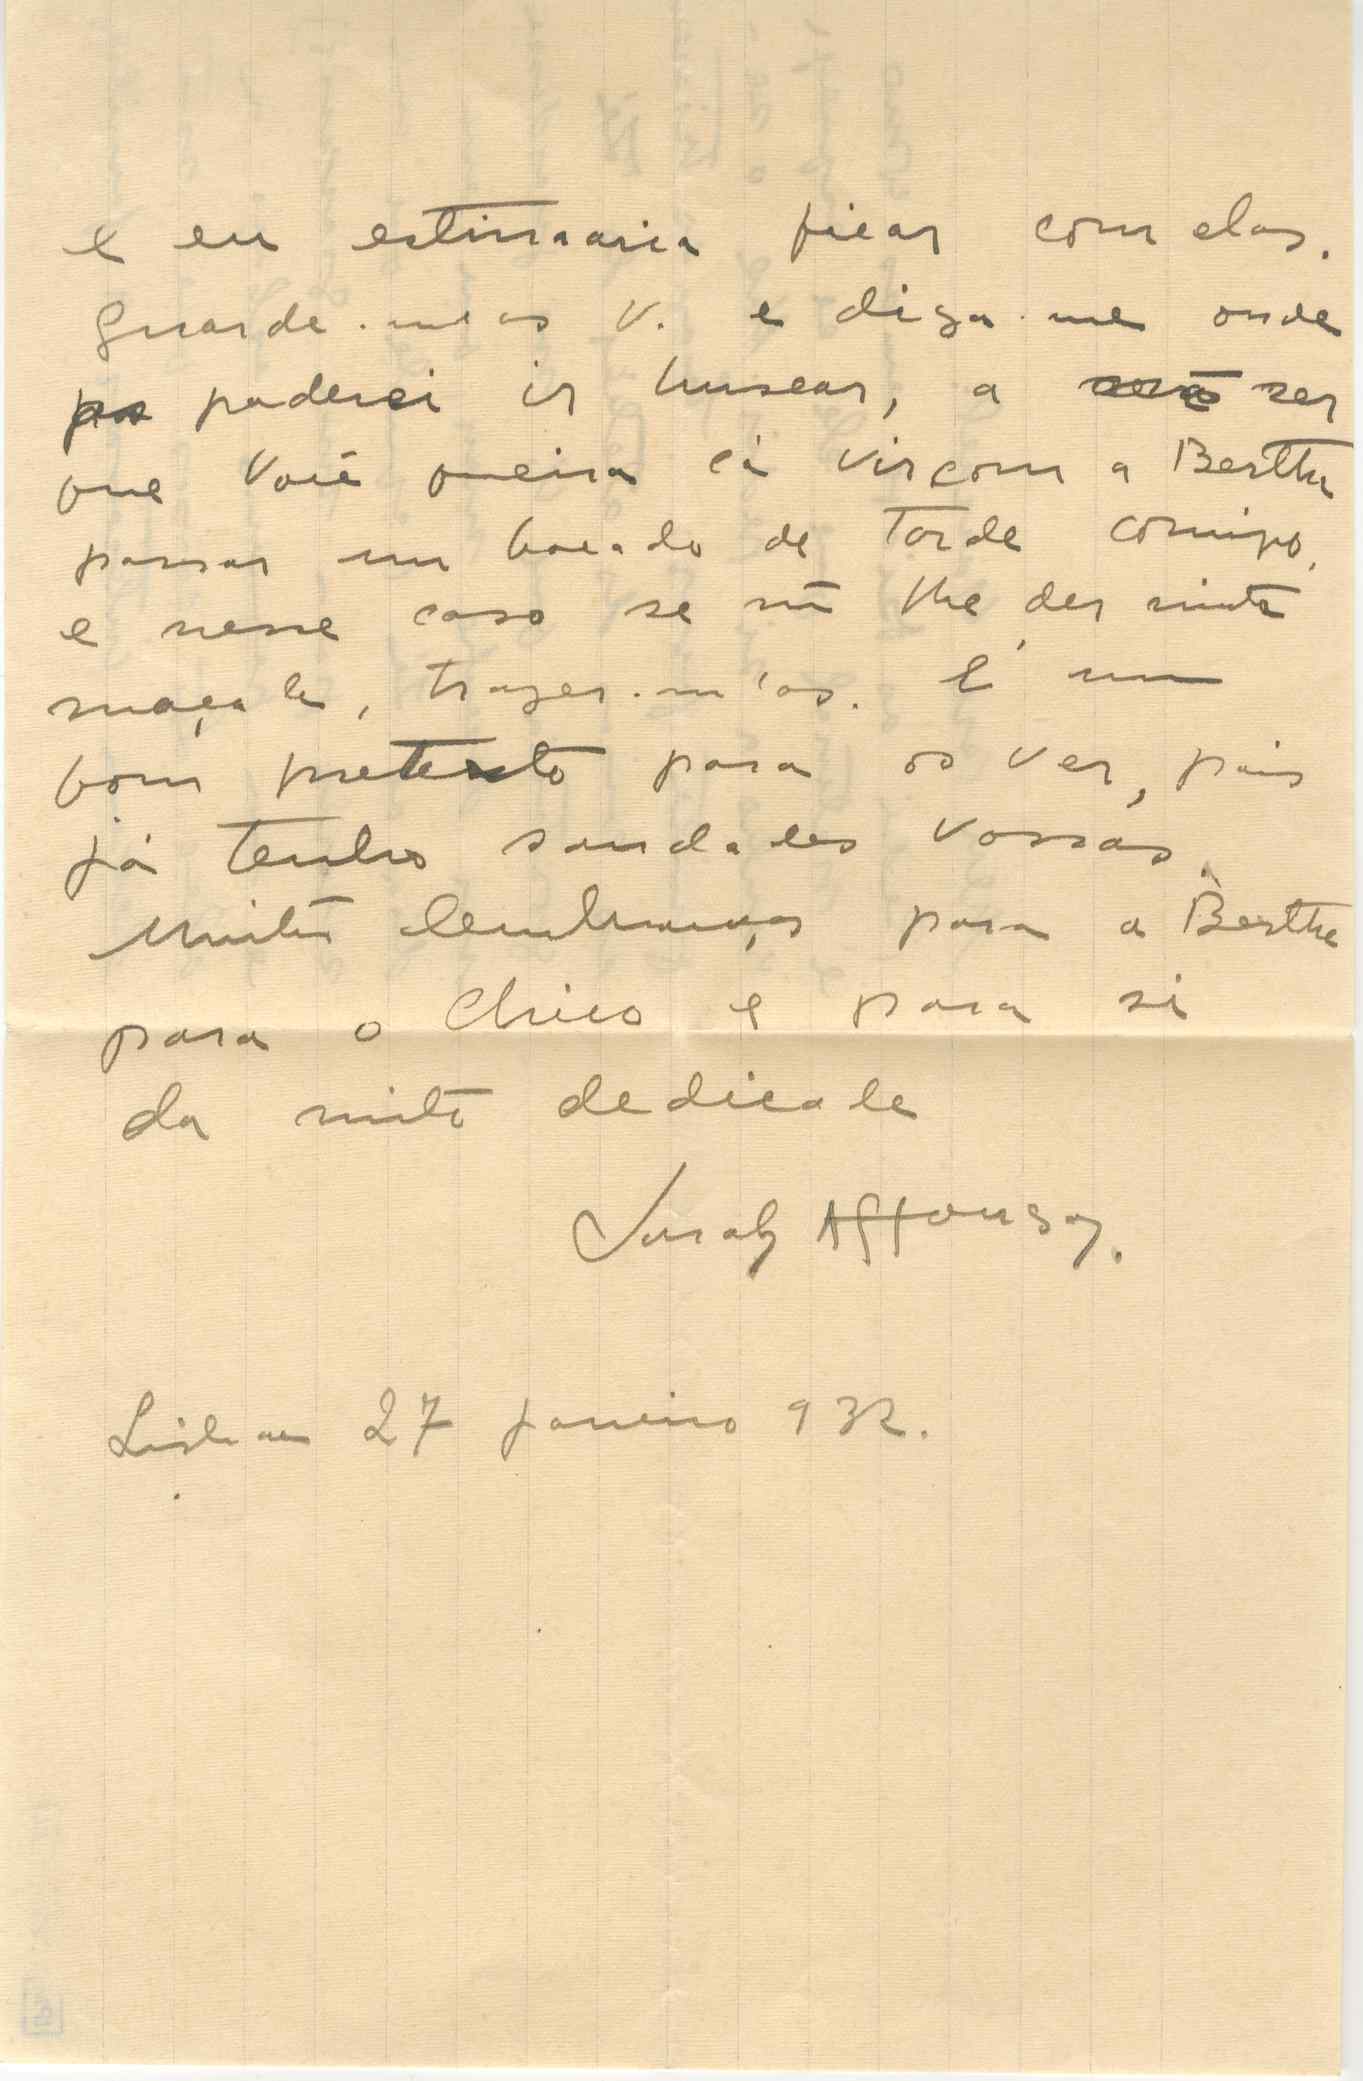 e eu estimaria ficar com elas.
Guarde-me as V. e diga-me onde
poderei ir buscar, a ser
que Você queira cá vir com a Bertha
passar um bocado de tarde comigo,
e nesse caso se nã lhe der muita
maçada, trazer-m'as. É um
bom pretexto para os ver, pois
já tenho saudades vossas.
Muitas lembranças para a Bertha
para o Chico e para si
da muito dedicada
Sarah Affonso.
Lisboa 27 Janeiro 932.